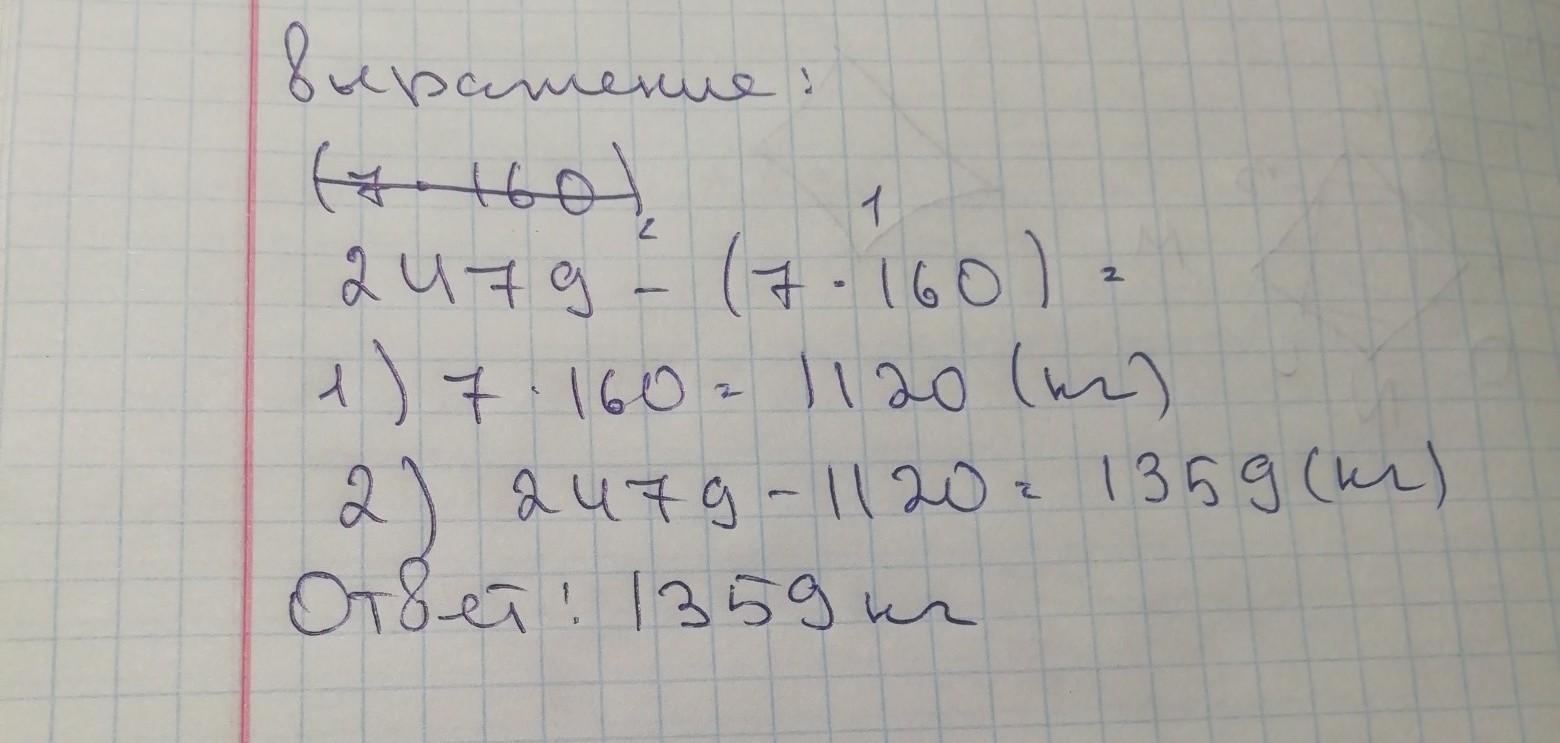 Выражение:
(7 · 160)
2 1
2479 - (7 · 160) =
1) 7 · 160 = 1120 (кг)
2) 2479 - 1120 = 1359 (кг)
Ответ: 1359 кг